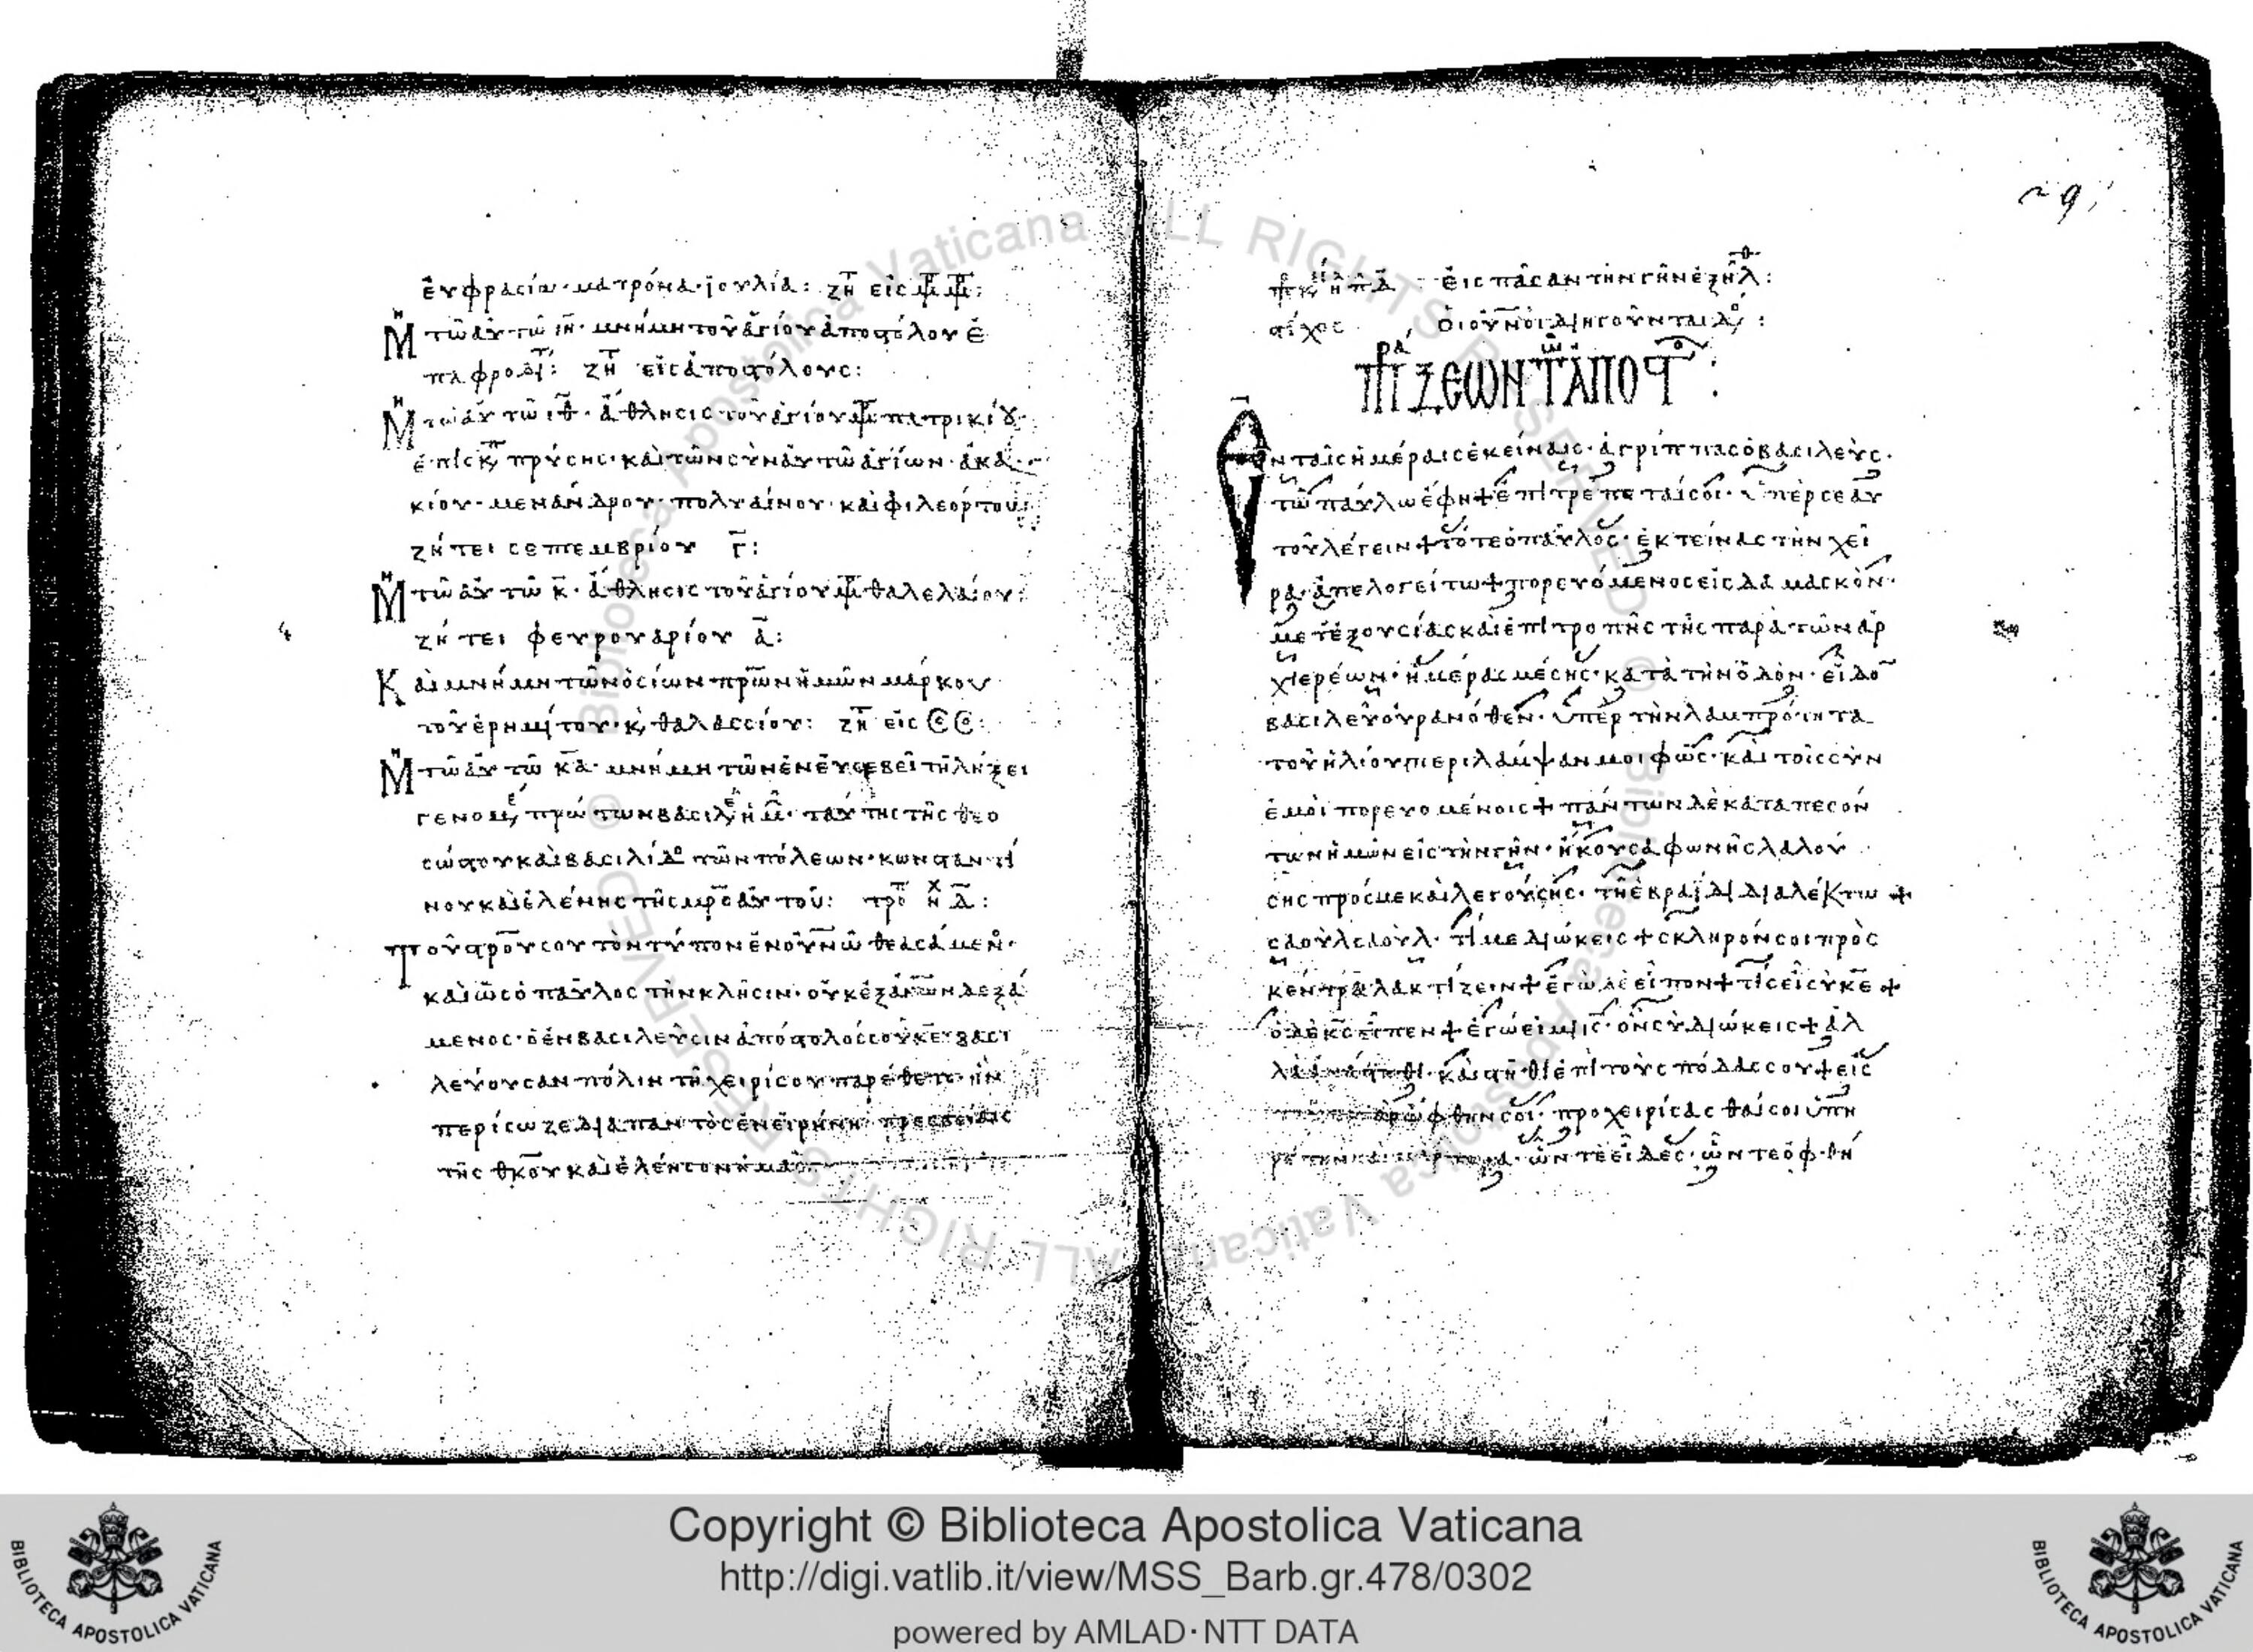 εὐφρασία· ματρόνα· ἰουλία: ζητ εἰς
Μ τῶ αὐτῶ ιη· μνήμη τοῦ ἁγίου ἀποστόλου ἐ
παφροδι: ζητ εἰς ἀποστόλους:
Μ τῶ αὐτῶ ιθ· ἄθλησις τοῦ ἁγίου πατρικίου
ἐπισκ προύσης· καὶ τῶν σὺν αὐτῶ ἁγίων· ἀκα
κίου· μενάνδρου· πολυαίνου· καὶ φιλεόρτου:
ζήτει σεπτεμβρίου γ:
Μ τῶ αὐτῶ κ· ἄθλησις τοῦ ἁγίου θαλελαίου:
ζήτει φευρουαρίου α:
Καὶ μνήμη τῶν ὁσίων πρων ἡμῶν μάρκου
τοῦ ἐρημίτου· κ θαλασσίου: ζητ εἰς
Μ τῶ αὐτῶ κα· μνήμη τῶν ἐν εὐσεβεῖ τῆ λήξει
γενομε πρώτων βασιλε ἡμ· ταύτης τῆς θεο
σώστου καὶ βασιλίδο τῶν πόλεων· κωνσταντί
νου καὶ ἑλένης τῆς μρσ αὐτοῦ: τροπ ηχ δ:
Τοῦ στρου σου τὸν τύπον ἐν οὐνω θεασάμενο·
καὶ ὡς ὁ παῦλος τὴν κλῆσιν· οὐκ ἐξ ἀνων δεξά
μενος· ὁ ἐν βασιλεῦσιν ἀπόστολός σου κε· βασι
λεύουσαν πόλιν τῆ χειρί σου παρέθετο· ἣν
περίσωζε διαπαντὸς ἐν εἰρήνη· πρεσβείαις
τῆς θκου καὶ ἐλέησον ἡμᾶς
προκ ηχ πλ δ εἰς πᾶσαν τὴν γῆν ἐξηλθ:
στίχος οἱ οὐνοὶ διηγοῦνται δο:
ΠΡΑΞΕΩΝ ΤΩΝ ΑΠΟΣΤΟ:
Ἐν ταῖς ἡμέραις ἐκείναις· ἀγρίππας ὁ βασιλεὺς·
τῶ παύλω ἔφη + ἐπιτρέπεταί σοι· ὑπὲρ σεαυ
τοῦ λέγειν + τότε ὁ παῦλος· ἐκτείνας τὴν χεῖ
ρα· ἀπελογεῖτω + πορευόμενος εἰς δαμασκὸν·
μετ' ἐξουσίας καὶ ἐπιτροπῆς τῆς παρὰ τῶν ἀρ
χιερέων· ἡμέρας μέσης· κατὰ τὴν ὁδὸν· εἶδο
βασιλεῦ οὐρανόθεν· ὑπὲρ τὴν λαμπρότητα
τοῦ ἡλίου περιλάμψαν μοι φῶς· καὶ τοῖς σὺν
ἐμοὶ πορευομένοις + πάντων δὲ καταπεσόν
των ἡμῶν εἰς τὴν γῆν· ἤκουσα φωνῆς λαλού
σης πρός με καὶ λεγούσης· τῆ ἑβραΐδι διαλέκτω +
σαοὺλ σαούλ· τί με διώκεις + σκληρόν σοι πρὸς
κέντρα λακτίζειν + ἐγὼ δὲ εἶπον + τίς εἶ σύ κε +
ὁ δὲ κς εἶπεν + ἐγώ εἰμι ις· ὃν σὺ διώκεις + ἀλ
λὰ ἀνάστηθι· καὶ στῆθι ἐπὶ τοὺς πόδας σου + εἰς
τοῦτο γὰρ ὤφθην σοι· προχειρίσασθαί σοι ὑπη
ρέτην καὶ μάρτυρα· ὧν τε εἶδες· ὧν τε ὀφθή